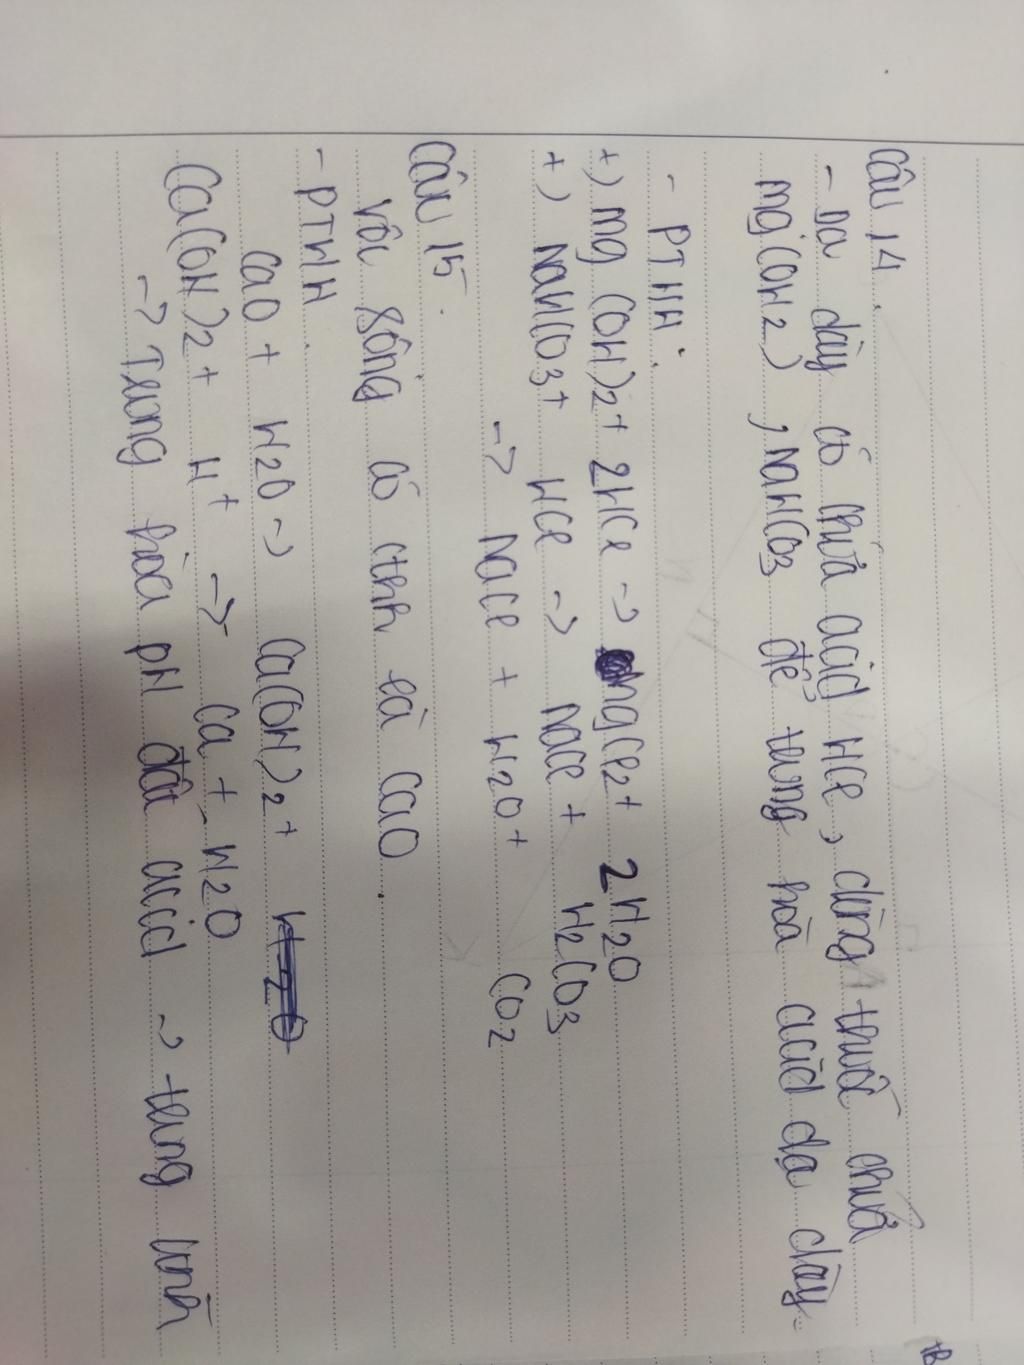 Câu 14.
- Dạ dày có chứa acid HCl, dùng thuốc chứa
Mg(OH2), NaHCO3 để trung hòa acid dạ dày.
- PTHH:
+) Mg(OH)2 + 2HCl -> MgCl2 + 2H2O
+) NaHCO3 + HCl -> NaCl + H2CO3
-> NaCl + H2O + CO2
Câu 15.
Vôi sống có cthh là CaO.
- PTHH.
CaO + H2O -> Ca(OH)2 + H2O
Ca(OH)2 + H+ -> Ca + H2O
-> Trung hòa pH đất acid -> trung tính